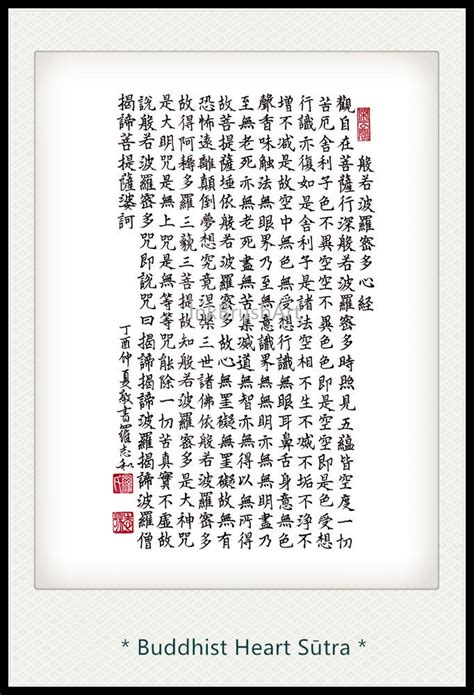 般若波羅密多心經
觀自在菩薩行深般若波羅密多時照見五蘊皆空度一切
苦厄舍利子色不異空空不異色色即是空空即是色受想
行識亦復如是舍利子是諸法空相不生不滅不垢不淨不
增不減是故空中無色無受想行識無眼耳鼻舌身意無色
聲香味觸法無眼界乃至無意識界無無明亦無無明盡乃
至無老死亦無老死盡無苦集滅道無智亦無得以無所得
故菩提薩埵依般若波羅密多故心無罣礙無罣礙故無有
恐怖遠離顛倒夢想究竟涅槃三世諸佛依般若波羅密多
故得阿耨多羅三藐三菩提故知般若波羅密多是大神咒
是大明咒是無上咒是無等等咒能除一切苦真實不虛故
說般若波羅密多咒即說咒曰揭諦揭諦波羅揭諦波羅僧
揭諦菩提薩婆訶
丁酉仲夏敬書羅志和
InkBrushArt
* Buddhist Heart Sūtra *